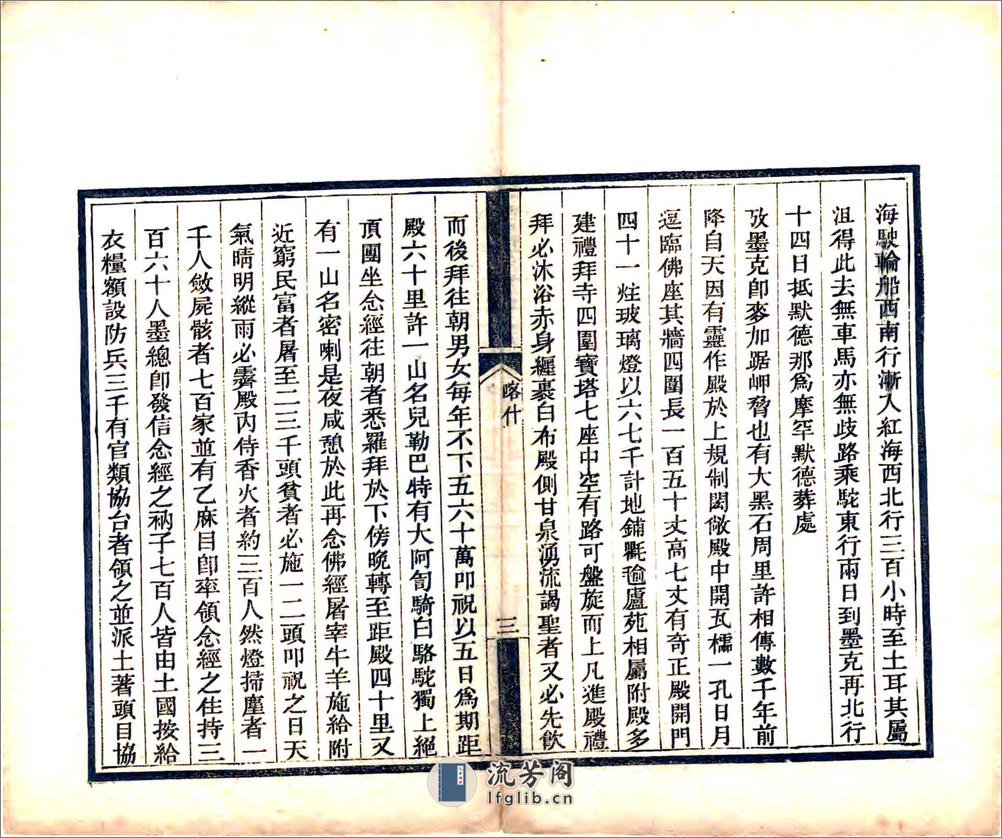 海駛輪船西南行漸入紅海西北行三百小時至土耳其屬
沮得此去無車馬亦無歧路乘駝東行兩日到墨克再北行
十四日抵默德那爲摩罕默德葬處
攷墨克卽麥加踞岬脅也有大黑石周里許相傳數千年前
降自天因有靈作殿於上規制閎敞殿中開瓦櫺一孔日月
逕臨佛座其牆四圍長一百五十丈高七丈有奇正殿開門
四十一炷玻璃燈以六七千計地鋪氍毹廬苑相屬附殿多
建禮拜寺四圍寶塔七座中空有路可盤旋而上凡進殿禮
拜必沐浴赤身纏裹白布殿側甘泉湧流謁聖者又必先飲
喀什
三
而後拜往朝男女每年不下五六十萬叩祝以五日爲期距
殿六十里許一山名兒勒巴特有大阿訇騎白駱駝獨上絕
頂團坐念經往朝者悉羅拜於下傍晚轉至距殿四十里又
有一山名密喇是夜咸憩於此再念佛經屠宰牛羊施給附
近窮民富者屠至二三千頭貧者必施一二頭叩祝之日天
氣晴明縱雨必霽殿內侍香火者約三百人然燈掃塵者一
千人斂屍骸者七百家並有乙麻目卽率領念經之住持三
百六十人墨總卽發信念經之衲子七百人皆由土國按給
衣糧額設防兵三千有官類協台者領之並派土著頭目協
流芳阁
lfglib.cn